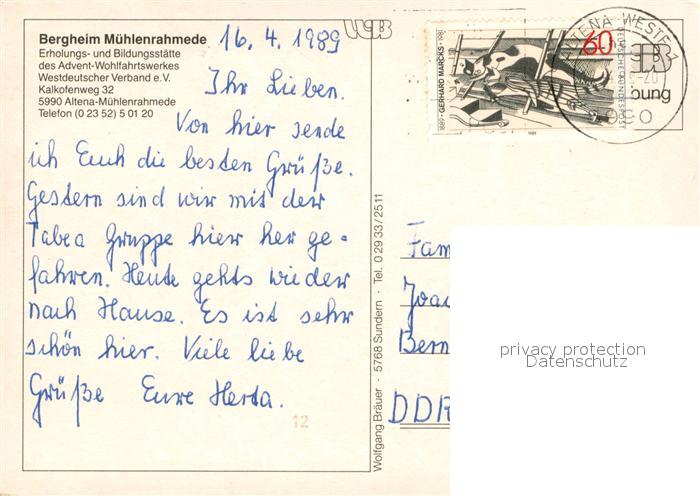 Bergheim Mühlenrahmede
Erholungs- und Bildungsstätte
des Advent-Wohlfahrtswerkes
Westdeutscher Verband e.V.
Kalkofenweg 32
5990 Altena-Mühlenrahmede
Telefon (0 23 52) 5 01 20
16. 4. 1989
Ihr Lieben.
Von hier sende
ich Euch die besten Grüße.
Gestern sind wir mit der
Tabea Gruppe hier her ge-
fahren. Heute gehts wieder
nach Hause. Es ist sehr
schön hier. Viele liebe
Grüße Eure Herta.
12
Wolfgang Bräuer · 5768 Sundern · Tel. 0 29 33 / 25 11
1889 · GERHARD MARCKS · 1981
60
DEUTSCHE BUNDESPOST
1989
ALTENA, WESTF 1
bung
Fam
Joac
Bern
DDR
privacy protection
Datenschutz